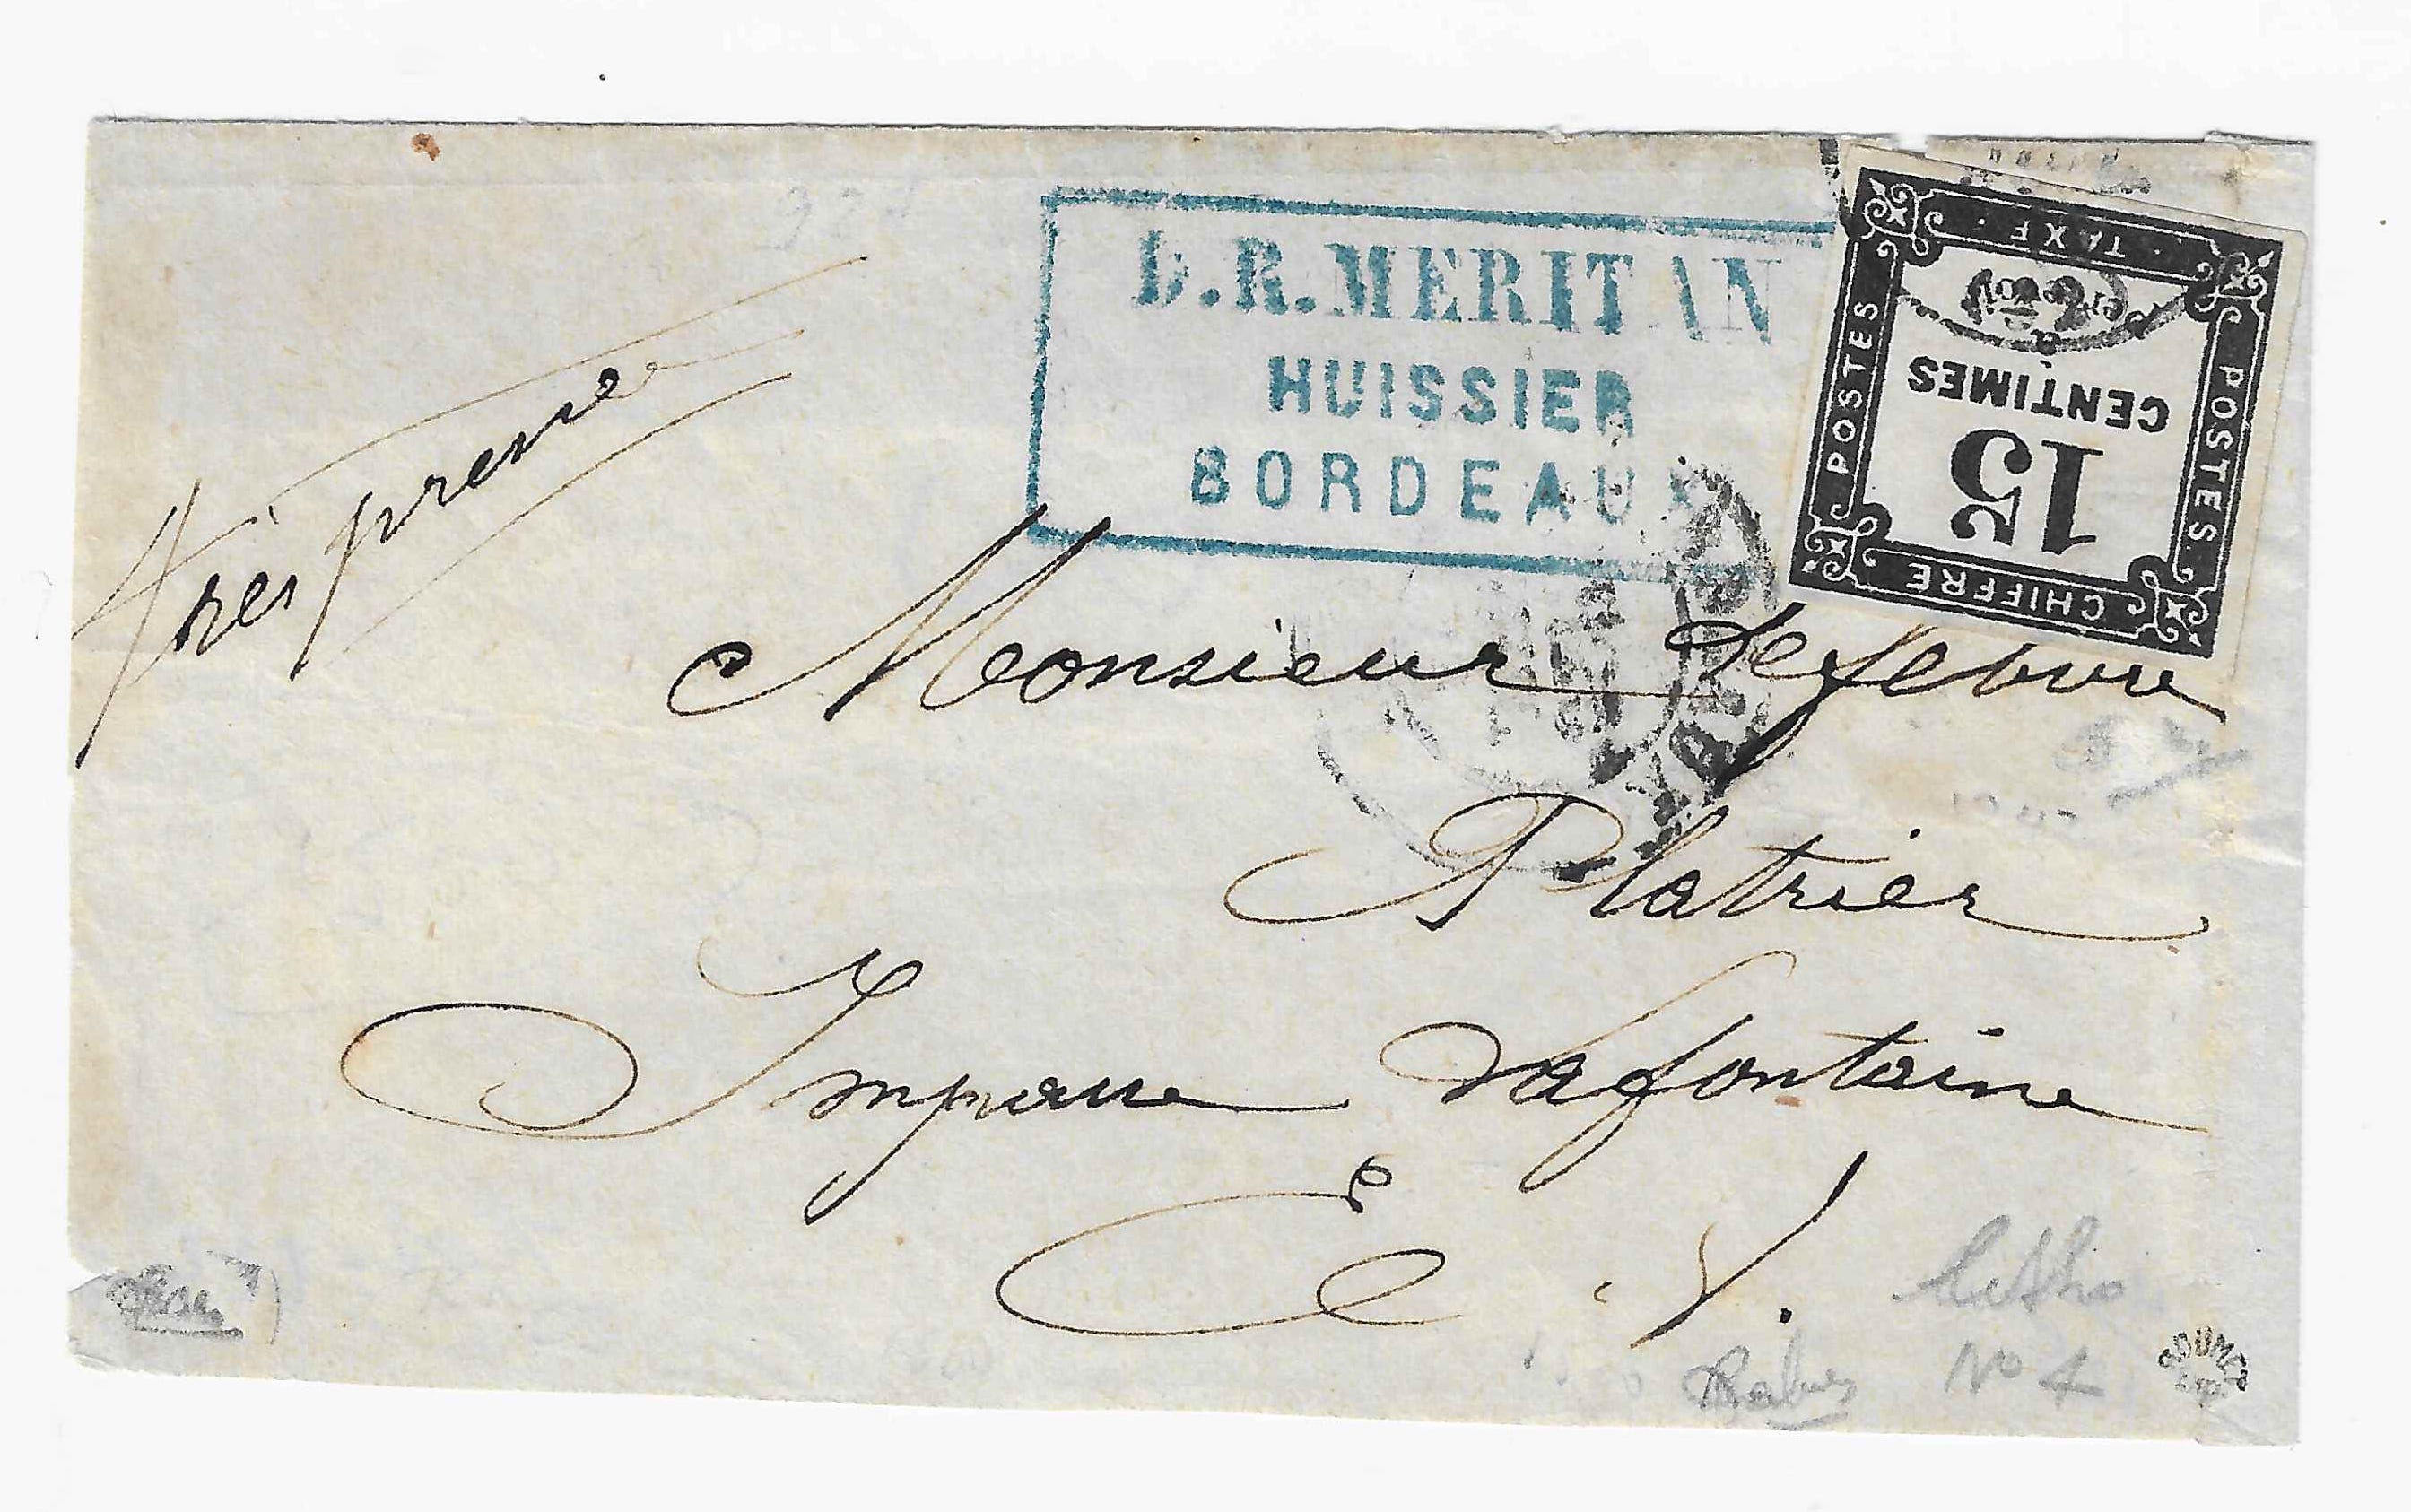 Très pressée
D.R. MERITAN
HUISSIER
BORDEAUX
CHIFFRE
TAXE
POSTES
POSTES
15
CENTIMES
à percevoir
Monsieur Lefebvre
Platrier
Impasse Lafontaine
E. V.
Litho
N° 4